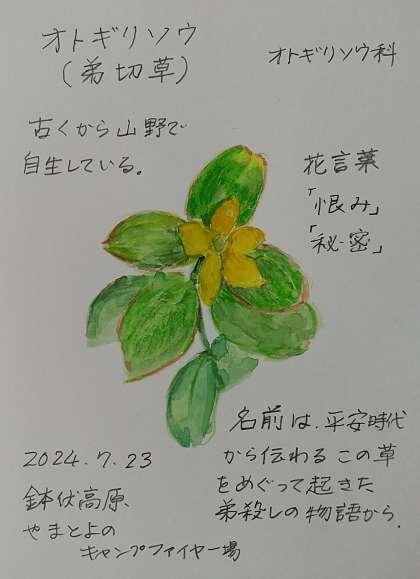 オトギリソウ
(弟切草)
オトギリソウ科
古くから山野で
自生している。
花言葉
「恨み」
「秘密」
名前は、平安時代
から伝わるこの草
をめぐって起きた
弟殺しの物語から.
2024.7.23
鉢伏高原
やまとよの
キャンプファイヤー場